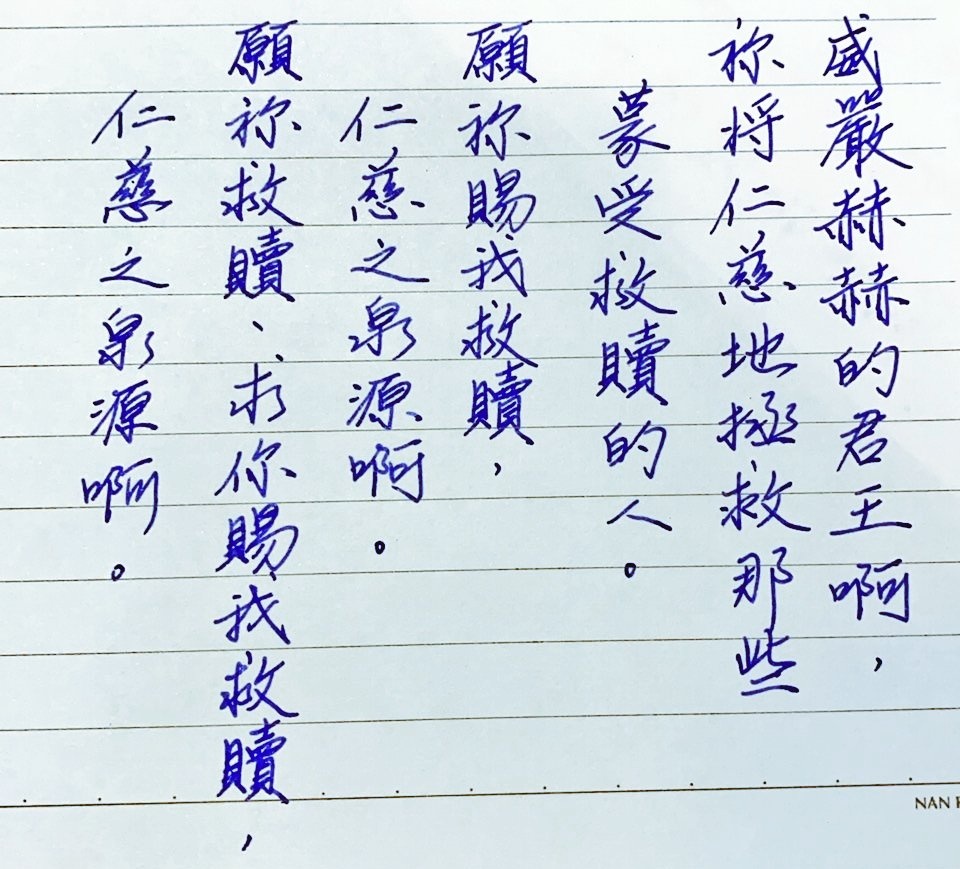 威嚴赫赫的君王啊，
祢將仁慈地拯救那些
蒙受救贖的人。
願祢賜我救贖，
仁慈之泉源啊。
願祢救贖、求你賜我救贖，
仁慈之泉源啊。
NAN